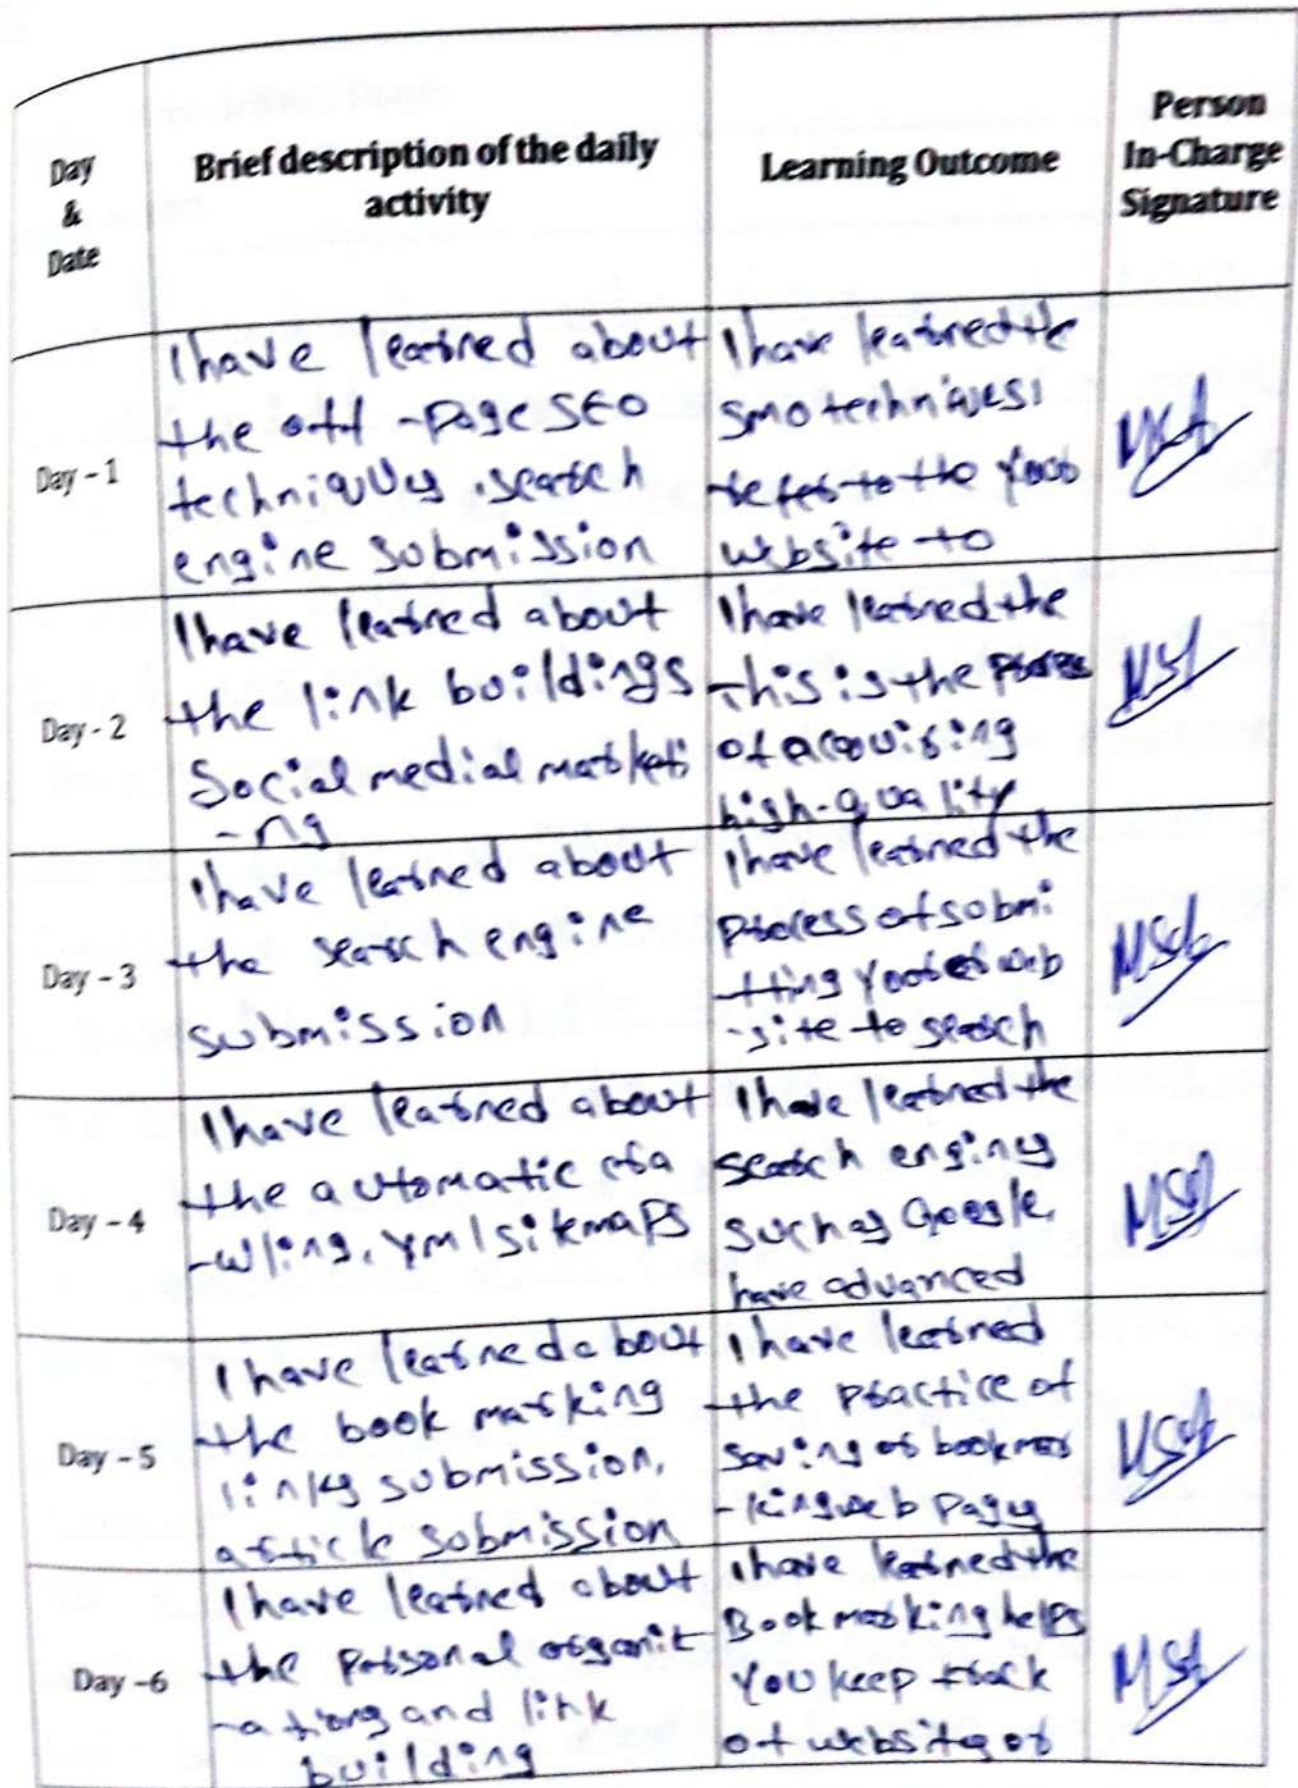 Day
&
Date
Brief description of the daily
activity
Learning Outcome
Person
In-Charge
Signature
Day - 1
I have learned about
the off -Page SEO
techniques, search
engine submission
I have learned the
SMO techniques
refer to the your
website to
Day - 2
I have learned about
the link buildings
Social medial marketi
-ng
I have learned the
This is the process
of acquiring
high-quality
Day - 3
I have learned about
the search engine
submission
I have learned the
process of submi
-tting your web
-site to search
Day - 4
I have learned about
the automatic cra
-wling, xml sitemaps
I have learned the
search engines
such as Google,
have advanced
Day - 5
I have learned about
the book marking
links submission,
article submission
I have learned
the practice of
saving or bookmar
-king web pages
Day -6
I have learned about
the personal organiz
-ations and link
building
I have learned the
Book marking helps
You keep track
of websites or